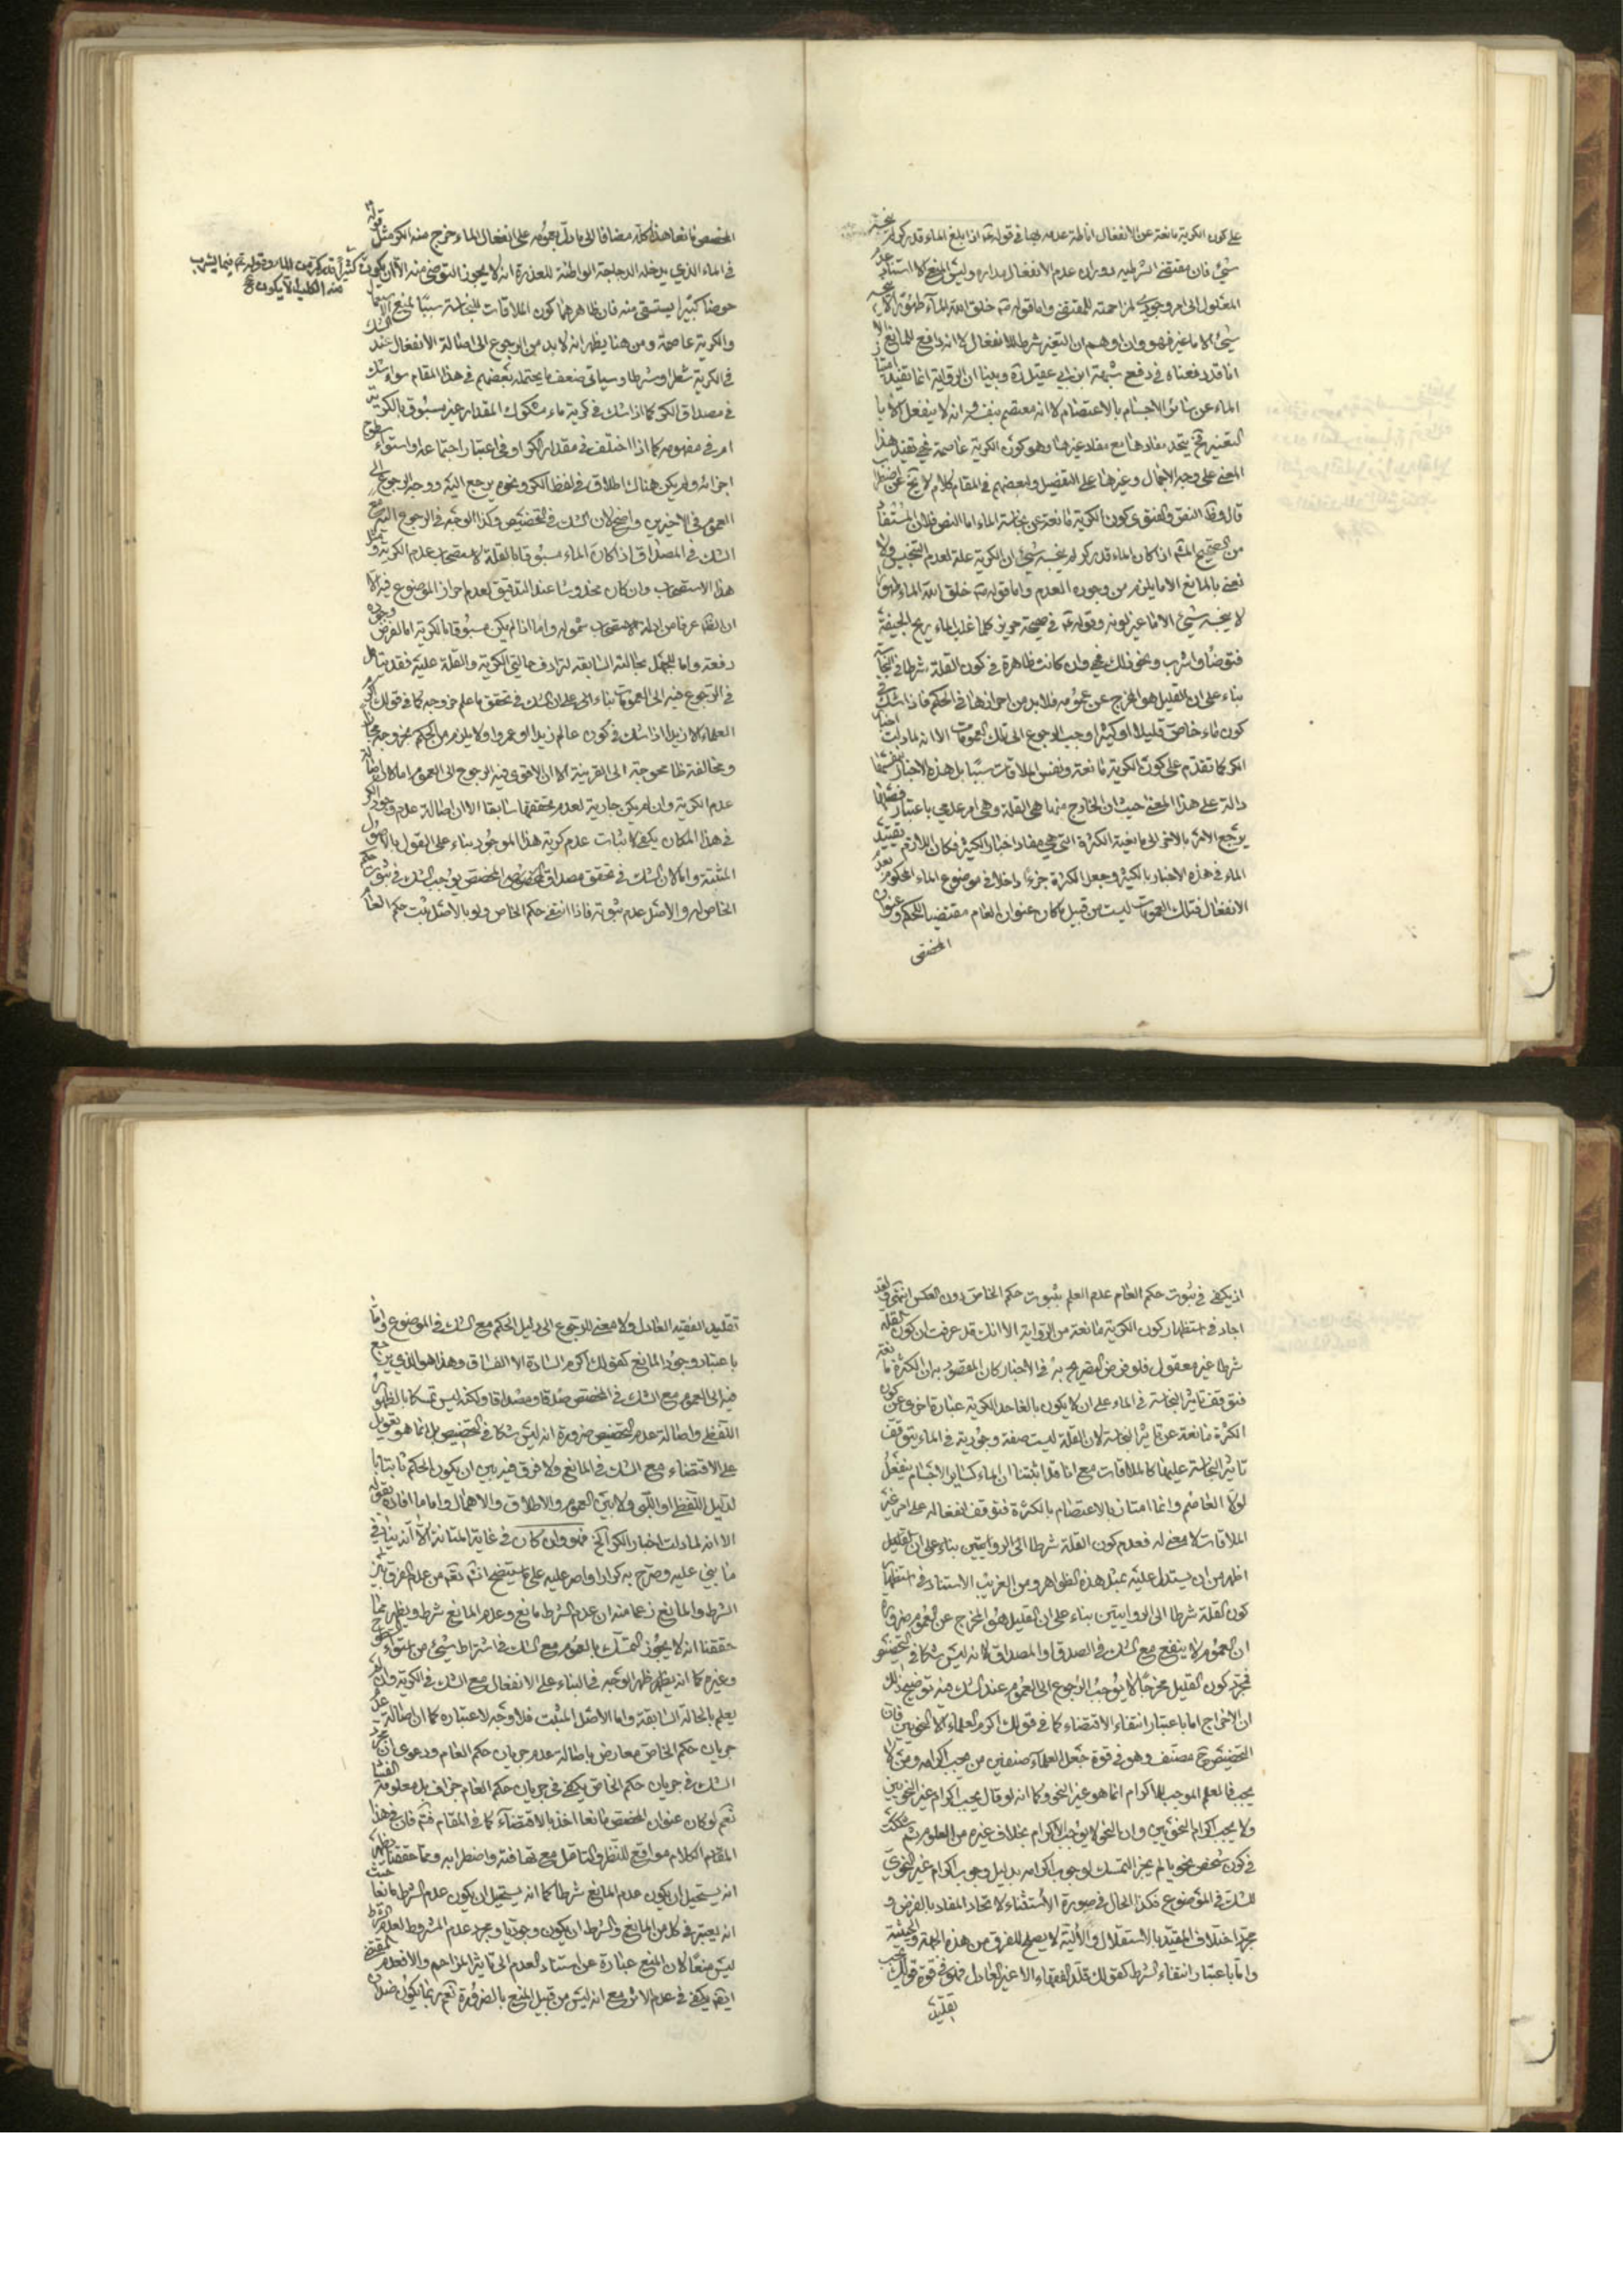 على كون الكرية مانعة عن الانفعال اناطة عدمه بها في قوله ع اذا بلغ الماء قدر كر لم ينجسه
شيئ فان مقتضى الشرطية دوران عدم الانفعال مداره وليس المنع الا استناد عدم
المعلول الى امر وجودي لمزاحمته للمقتضي واما قوله ص خلق الله الماء طهورا لا ينجسه
شيئ الا ما غير فهو وان اوهم ان التغير شرط للانفعال لا انه دافع للمانع الا
انا قد دفعناه في دفع شبهة ابن ابي عقيل ره وبينا ان الرواية انما تفيد امتياز
الماء عن سائر الاجسام بالاعتصام لا انه معتصم بنفسه وانه لا ينفعل الا با
لتغير فح يتحد مفادها مع مفاد غيرها وهو كون الكرية عاصمة فهي تفيد هذا
المعنى على وجه الاجمال وغيرها على التفصيل ولبعضهم في المقام كلام لا يخ عن اضطراب
قال وظ النص والفتوى كون الكرية مانعة عن نجاسة الماء اما النص فلان المستفاد
من الصحيح المشهور اذا كان الماء قدر كر لم ينجسه شيئ ان الكرية علة لعدم التنجيس ولا
نعني بالمانع الا ما يلزم من وجوده العدم واما قوله ص خلق الله الماء طهورا
لا ينجسه شيئ الا ما غير لونه وقوله ع في صحيحة حريز كلما غلب الماء ريح الجيفة
فتوضأ واشرب ونحو ذلك فهي وان كانت ظاهرة في كون القلة شرطا في النجاسة
بناء على ان القليل هو المخرج عن عمومه فلا بد من احرازها في الحكم فاذا شك في
كون ماء خاص قليلا او كثيرا وجب الرجوع الى تلك العمومات الا انه لما دلت اخبار
الكر كما تقدم على كون الكرية مانعة ونفس الملاقات سببا بل هذه الاخبار بنفسها
دالة على هذا المعنى حيث ان الخارج منها هي القلة وهي امر عدمي باعتبار فصلها
يرجع الامر بالاخرة الى مانعية الكثرة التي هي مفاد اخبار الكثير فكان اللازم تقييد
الماء في هذه الاخبار بالكثير وجعل الكثرة جزءا داخلا في موضوع الماء المحكوم بعدم
الانفعال فتلك العمومات ليست من قبيل ما كان عنوان العام مقتضيا للحكم وعنوان
المخصص
المخصص مانعا هذا كله مضافا الى ما دل بعمومه على انفعال الماء خرج منه الكر مثل قوله ع
في الماء الذي يدخله الدجاجة الواطئة للعذرة انه لا يجوز التوضي منه الا ان يكون كثيرا قدر كر من الماء وقوله ع فيما يشرب
منه الكلب الا ان يكون
حوضا كبيرا يستسقى منه فان ظاهرهما كون الملاقات للنجاسة سببا لمنع الاستعمال
والكرية عاصمة ومن هنا يظهر انه لا بد من الرجوع الى اصالة الانفعال عند الشك
في الكرية شطرا وشرطا وسياتي ضعف ما يحتمله بعضهم في هذا المقام سواء شك
في مصداق الكر كما اذا شك في كرية ماء مشكوك المقدار غير مسبوق بالكرية
ام في مفهومه كما اذا اختلف في مقدار الكر او في اعتبار اجتماعه واستواء سطوح
اجزائه ولم يكن هناك اطلاق في لفظ الكر ونحوه يرجع اليه ووجه الرجوع الى
العموم في الاخيرين واضح لان الشك في التخصيص وكذا الوجه في الرجوع اليه مع
الشك في المصداق اذا كان الماء مسبوقا بالقلة لاستصحاب عدم الكرية ومثل
هذا الاستصحاب وان كان مخدوشا عند التدقيق لعدم احراز الموضوع فيه الا
ان الظ عرفا من ادلة الاستصحاب شموله واما اذا لم يكن مسبوقا بالكرية اما لفرض وجوده
دفعة واما للجهل بحالته السابقة لترادف حالتي الكرية والقلة عليه فقد يتامل
في الرجوع فيه الى العمومات بناء على ان الشك في تحقق ما علم خروجه كما في قولك اكرم
العلماء الا زيدا اذا شك في كون عالم زيدا او عمروا ولا يلزم من الحكم بخروجه مجاز
ومخالفة ظ محوجة الى القرينة الا ان الاقوى فيه الرجوع الى العموم اما لان اصالة
عدم الكرية وان لم يكن جارية لعدم تحققها سابقا الا ان اصالة عدم وجود الكر
في هذا المكان يكفي لاثبات عدم كرية هذا الموجود بناء على القول بالاصول
المثبتة واما لان الشك في تحقق مصداق المخصص يوجب الشك في ثبوت حكم
الخاص له والاصل عدم ثبوته فاذا انتفى حكم الخاص ولو بالاصل ثبت حكم العام
اذ يكفي في ثبوت حكم العام عدم العلم بثبوت حكم الخاص دون العكس انتهى ولقد
اجاد في استظهار كون الكرية مانعة من الرواية الا انك قد عرفت ان كون القلة
شرطا غير معقول فلو فرض التصريح به في الاخبار كان المقصود به ان الكثرة مانعة
فتوقف تاثير النجاسة في الماء على ان لا يكون بالغا حد الكرية عبارة اخرى عن كون
الكثرة مانعة عن تاثير النجاسة لان القلة ليست صفة وجودية في الماء يتوقف
تاثير النجاسة عليها كالملاقات مع انا قد اثبتنا ان الماء كسائر الاجسام ينفعل
لولا العاصم وانما امتاز بالاعتصام بالكثرة فتوقف انفعاله على امر غير
الملاقات لا معنى له فعدم كون القلة شرطا في الروايتين بناء على ان القليل
اظهر من ان يستدل عليه بمثل هذه الظواهر ومن الغريب الاستناد في استظهار
كون القلة شرطا الى الروايتين بناء على ان القليل هو المخرج عن العموم ضرورة
ان العموم لا ينفع مع الشك في الصدق او المصداق لانه ليس شكا في التخصيص
فمجرد كون القليل مخرجا لا يوجب الرجوع الى العموم عند الشك فيه توضيح ذلك
ان الاخراج اما باعتبار انتفاء الاقتضاء كما في قولك اكرم العلماء الا النحويين فان
التخصيص ح مصنف وهو في قوة جعل العلماء صنفين من يجب اكرامه ومن لا
يجب فالعلم الموجب للاكرام انما هو غير النحو وكما انه لو قال يجب اكرام غير النحويين
ولا يجب اكرام النحويين وان النحو لا يوجب الاكرام بخلاف غيره من العلوم ثم شككت
في كون شخص نحويا لم يجز التمسك لوجوب اكرامه بدليل وجوب اكرام غير النحوي
للشك في الموضوع فكذا الحال في صورة الاستثناء لاتحاد المفاد بالفرض و
مجرد اختلاف التقييد بالاستقلال والآلية لا يصلح للفرق من هذه الجهة والحيثية
واما باعتبار انتفاء الشرط كقولك قلد الفقهاء الا غير العادل فهو في قوة قولك يجب
تقليد
تقليد الفقيه العادل ولا معنى للرجوع الى دليل الحكم مع الشك في الموضوع واما
باعتبار وجود المانع كقولك اكرم السادة الا الفساق وهذا هو الذي يرجع
فيه الى العموم مع الشك في المخصص صدقا ومصداقا ولكنه ليس تمسكا بالظهور
اللفظي واصالة عدم التخصيص ضرورة انه ليس شكا في التخصيص بل انما هو تعويل
على الاقتضاء مع الشك في المانع ولا فرق فيه بين ان يكون الحكم ثابتا با
لدليل اللفظي او اللبي ولا بين العموم والاطلاق والاهمال واما ما افاده بقوله
الا انه لما دلت اخبار الكر الخ فهو وان كان في غاية المتانة الا انه ينافي
ما بني عليه وصرح به كرارا واصر عليه على ما يتضح انش تع من عدم الفرق بين
الشرط والمانع زعما منه ان عدم الشرط مانع وعدم المانع شرط ويظهر مما
حققنا انه لا يجوز التمسك بالعموم مع الشك في اشتراط شيئ من استواء السطوح
وغيره كما انه يظهر ظهر الوجه في البناء على الانفعال مع الشك في الكرية وان لم
يعلم بالحالة السابقة واما الاصل المثبت فلا وجه لاعتباره كما ان اصالة عدم
جريان حكم الخاص معارض باصالة عدم جريان حكم العام ودعوى ان مجرد
الشك في جريان حكم الخاص يكفي في جريان حكم العام جزاف بل معلومة الفساد
نعم لو كان عنوان المخصص مانعا اخذ بالاقتضاء كما في المقام فتم فان في هذا
المقام الكلام مواقع للنظر والتامل مع تهافته واضطرابه ومما حققنا يظهر
انه يستحيل ان يكون عدم المانع شرطا كما انه يستحيل ان يكون عدم الشرط مانعا حيث
انه يعتبر في كل من المانع والشرط ان يكون وجوديا ومجرد عدم المشروط لعدم الشرط
ليس منعا لان المنع عبارة عن استناد العدم الى تاثير المزاحم والا فعدم المقتضي
ايضا يكفي في عدم الاثر مع انه ليس من قبيل المنع بالضرورة نعم ربما يكون ضدان